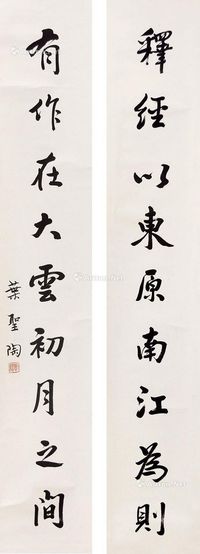 釋經以東原南江為則
有作在大雲初月之間
葉聖陶